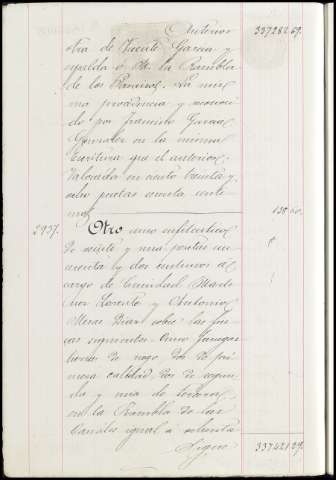 Anterior 337282 69.
otra de Vicente Garcia y
espalda à la Rambla
de los Pararios. La mis
ma procedencia y recono
cido por Francisco Garcia
Gonzalez en la misma
Escritura que el anterior.
Valorado en ciento treinta y
ocho pesetas sesenta centi
mos 138 60.
2937. Otro censo enfiteutico
de veinte y una pesetas cin
cuenta y dos centimos al
cargo de Trinidad Marti
nez Lorente y Antonio
Meras Diaz sobre las fin
cas siguientes. Cinco fanegas
de riego dos de pri
mera calidad, dos de segun
da y una de tercera
en la Rambla de los
Canales igual à setenta
Sigue 337421 29.